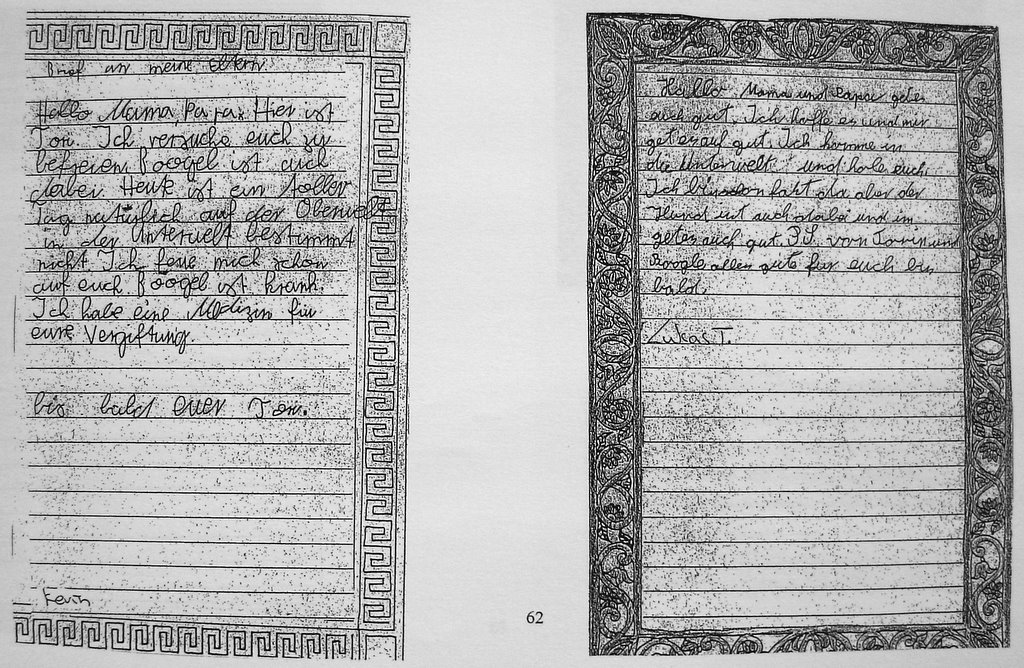 Brief an meine Eltern
Hallo Mama, Papa. Hier ist
Tori. Ich versuche euch zu
befreien. Roogel ist auch
dabei Heute ist ein toller
Tag natürlich auf der Oberwelt
in der Unterwelt bestimmt
nicht. Ich feue mich schon
auf euch Roogel ist krank.
Ich habe eine Medizin für
eure Vergiftung.
bis bald euer Tori.
Kevin
62
Hallo Mama und Papa gets
euch gut. Ich hoffe es und mir
get es auf gut. Ich komme in
die Unterwelt und hole euch.
Ich bin schon fast da aber der
Hund ist auch dabei und im
get es auch gut. P.S. von Torin und
Roogle alles gute für euch bis
bald.
Lukas T.